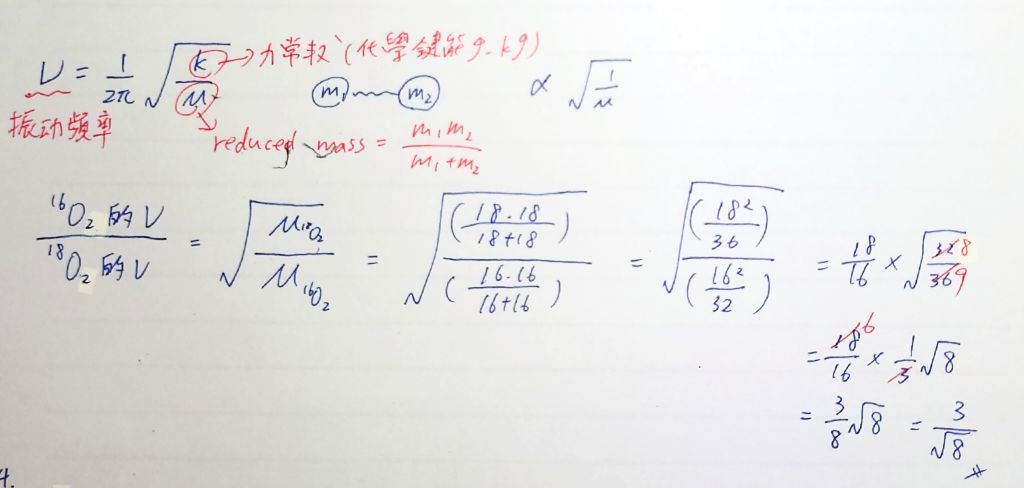 ν = 1/2π √(k/μ) → 力常數 (化學鍵能 g. kg) m₁ m₂ ∝ √(1/μ)
振动頻率 reduced mass = m₁m₂/(m₁+m₂)
¹⁶O₂ 的 ν / ¹⁸O₂ 的 ν = √(μ¹⁸O₂/μ¹⁶O₂) = √((18·18/18+18)/(16·16/16+16)) = √((18²/36)/(16²/32)) = 18/16 × √(32/36) 8 9
= 18/16 6 × 1/3 √8
= 3/8 √8 = 3/√8
4.